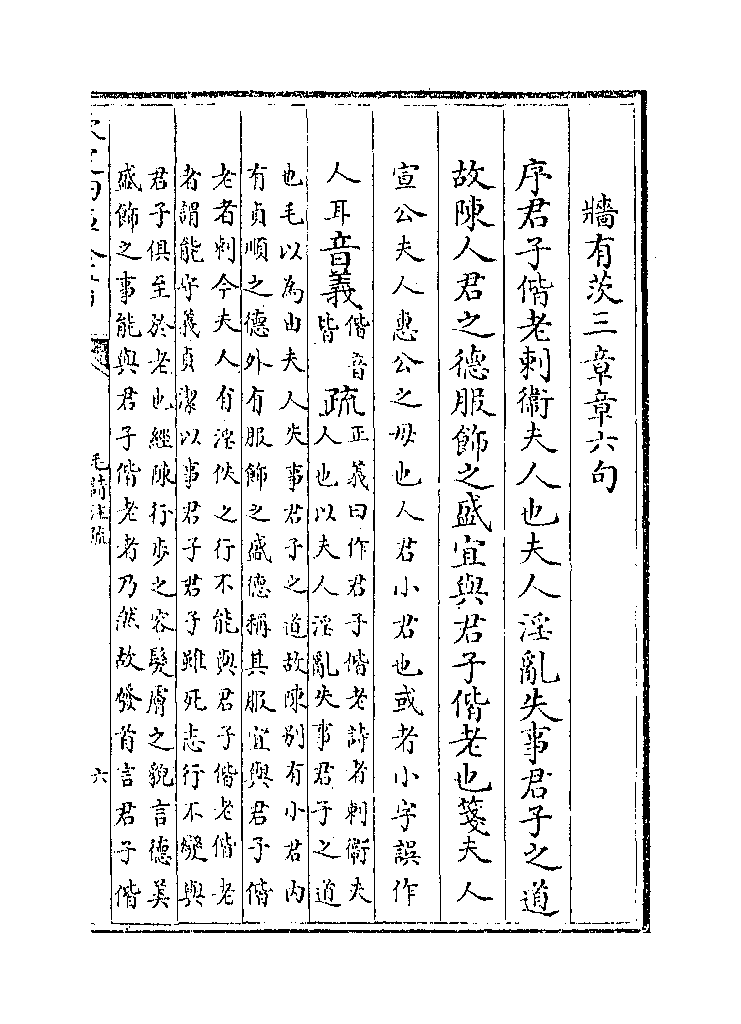 牆有茨三章章六句
序君子偕老刺衞夫人也夫人淫亂失事君子之道
故陳人君之德服飾之盛宜與君子偕老也箋夫人
宣公夫人惠公之母也人君小君也或者小字誤作
人耳音義偕音
皆疏正義曰作君子偕老詩者刺衞夫
人也以夫人淫亂失事君子之道
也毛以為由夫人失事君子之道故陳别有小君内
有貞順之德外有服飾之盛德稱其服宜與君子偕
老者刺今夫人有淫佚之行不能與君子偕老偕老
者謂能守義貞潔以事君子君子雖死志行不變與
君子俱至於老也經陳行步之容髮膚之貌言德美
盛飾之事能與君子偕老者乃然故發首言君子偕
毛詩注疏
六